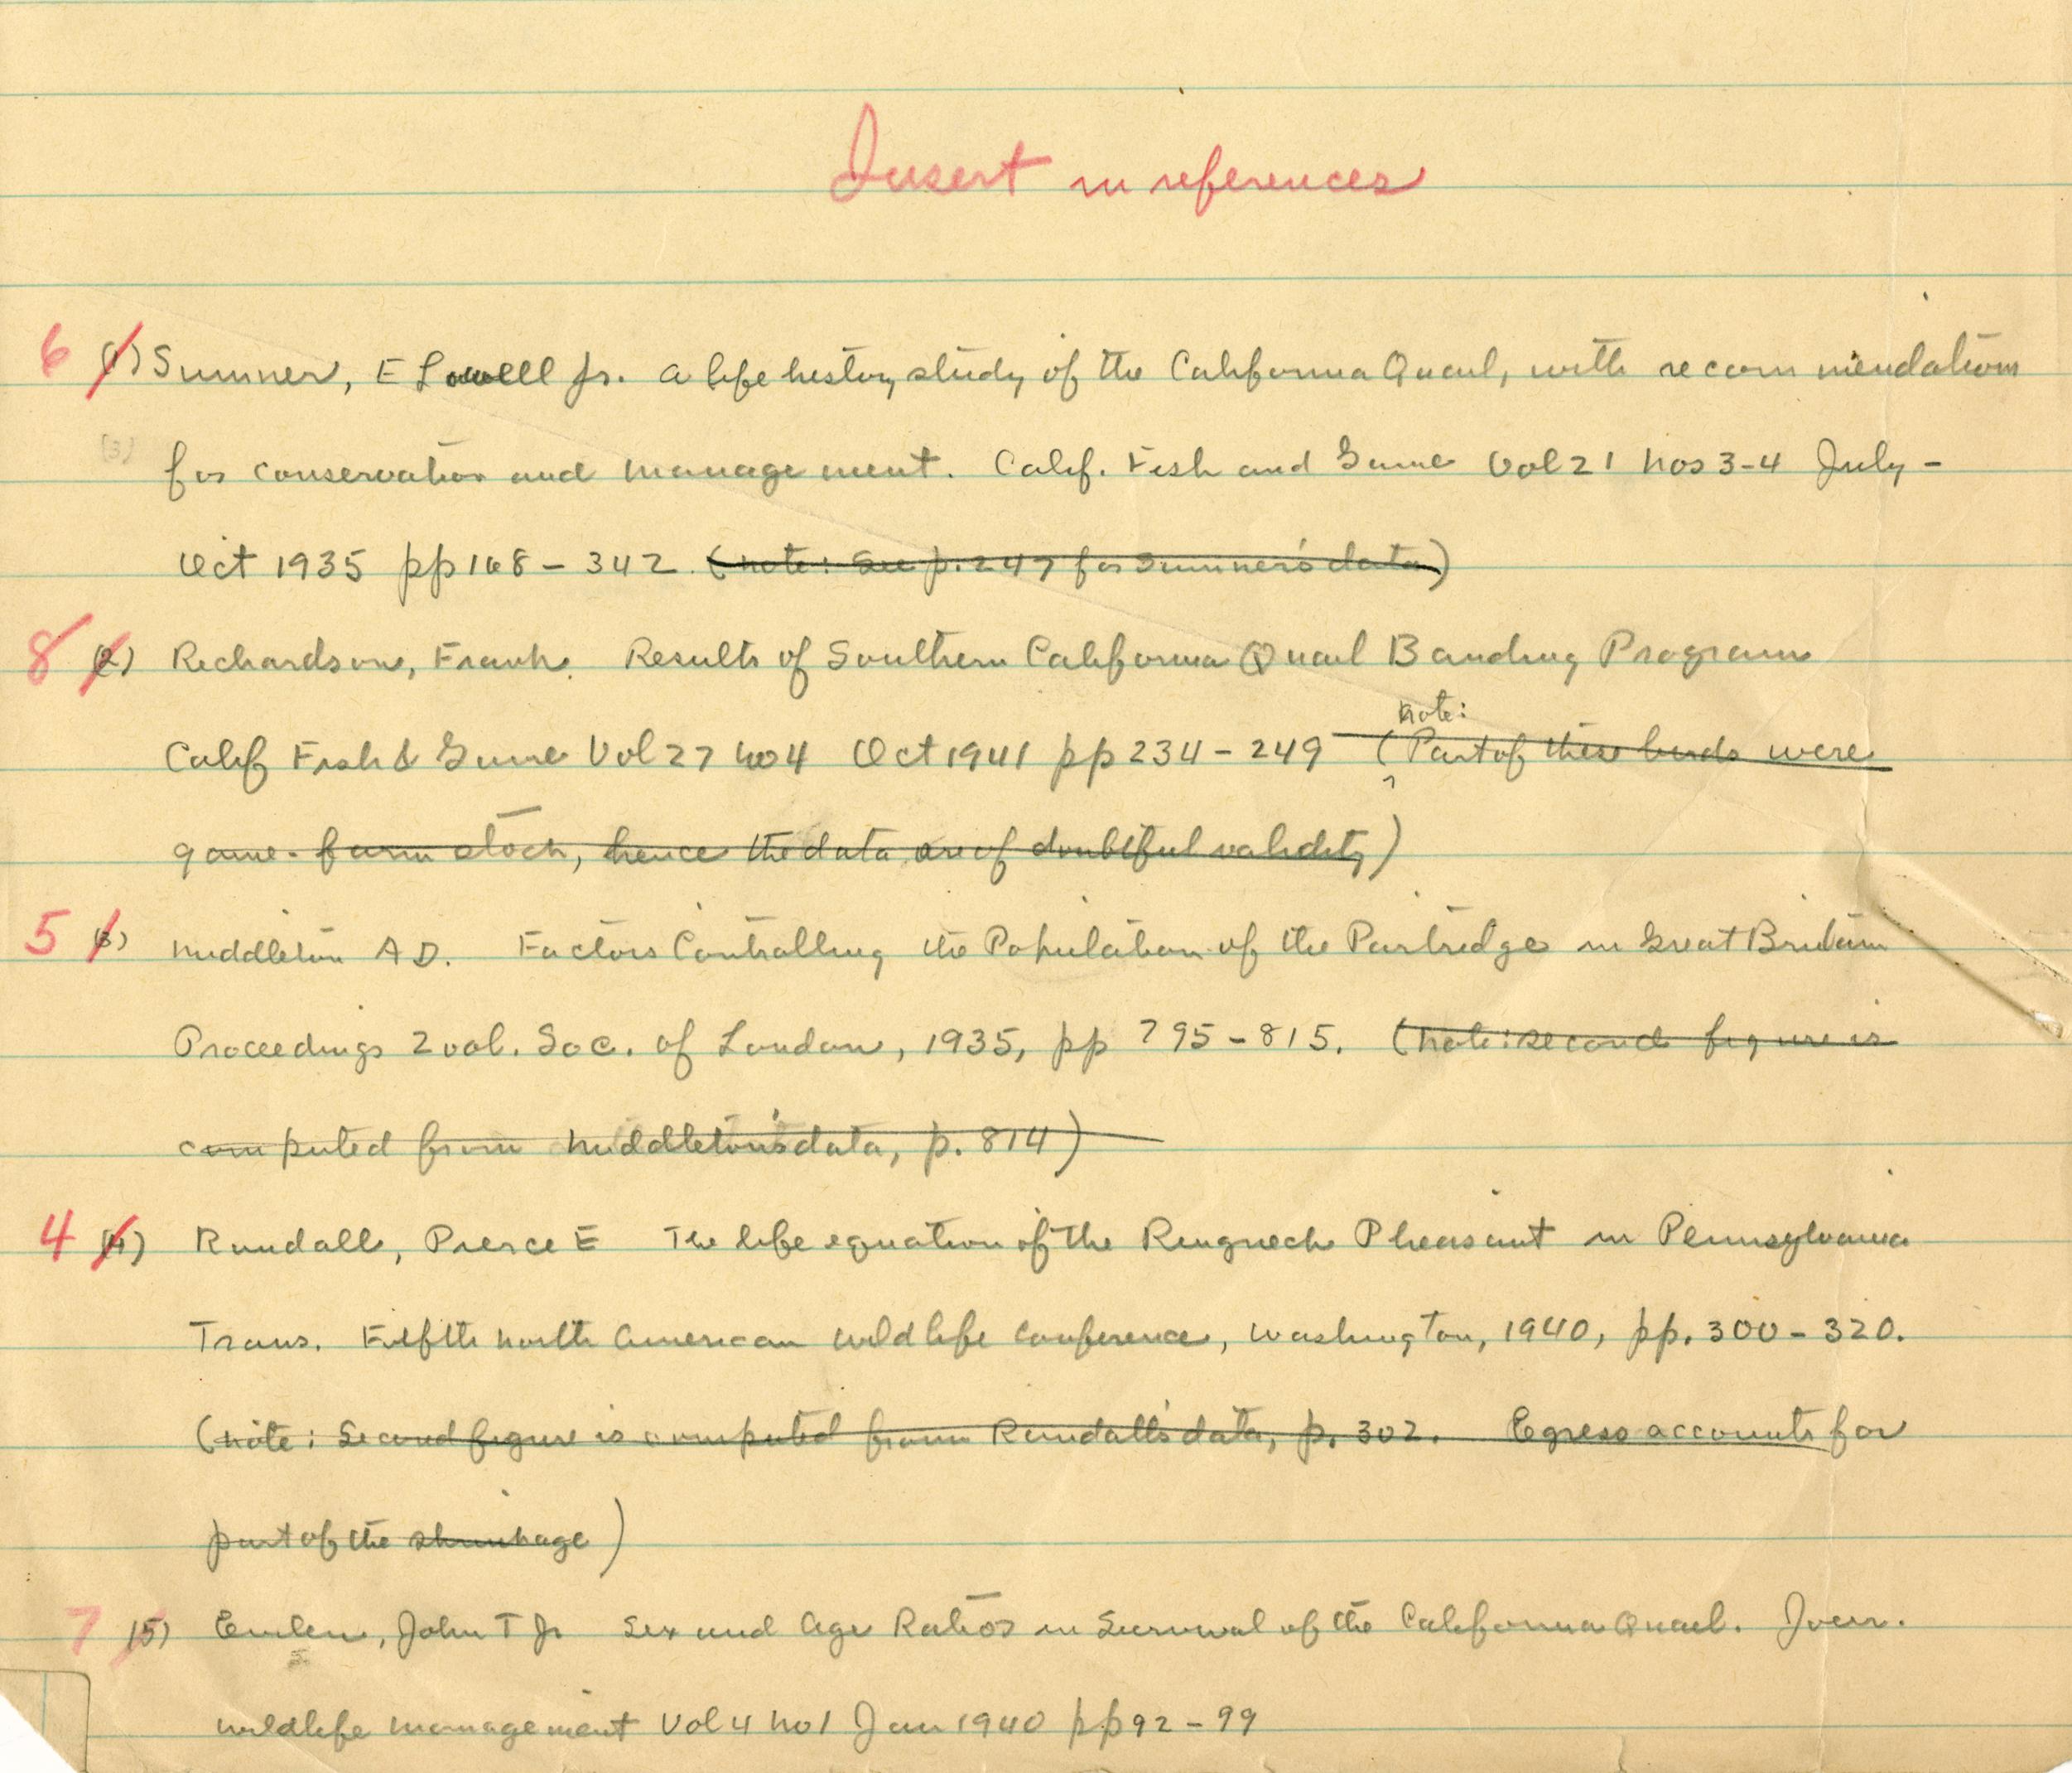 Insert in references
6 (1) Sumner, E Lowell Jr. A life history study of the California Quail, with recommendations
(3) for conservation and management. Calif. Fish and Game Vol 21 Nos 3-4 July -
Oct 1935 pp 168 - 342. (note: See p. 247 for Sumner's data)
8 (2) Richardson, Frank. Results of Southern California Quail Banding Program
note:
Calif Fish & Game Vol 27 No 4 Oct 1941 pp 234 - 249 (Part of these birds were
game-farm stock, hence the data are of doubtful validity)
5 (3) Middleton A D. Factors Controlling the Population of the Partridge in Great Britain
Proceedings Zool. Soc. of London, 1935, pp 795 - 815. (note: second figure is
computed from Middleton's data, p. 814)
4 (4) Randall, Pierce E The life equation of the Ringneck Pheasant in Pennsylvania
Trans. Fifth North American Wildlife Conference, Washington, 1940, pp. 300 - 320.
(note: Second figure is computed from Randall's data, p. 302. Egress accounts for
part of the shrinkage)
7 (5) Emlen, John T Jr Sex and Age Ratios in Survival of the California Quail. Jour.
Wildlife Management Vol 4 No 1 Jan 1940 pp 92 - 99